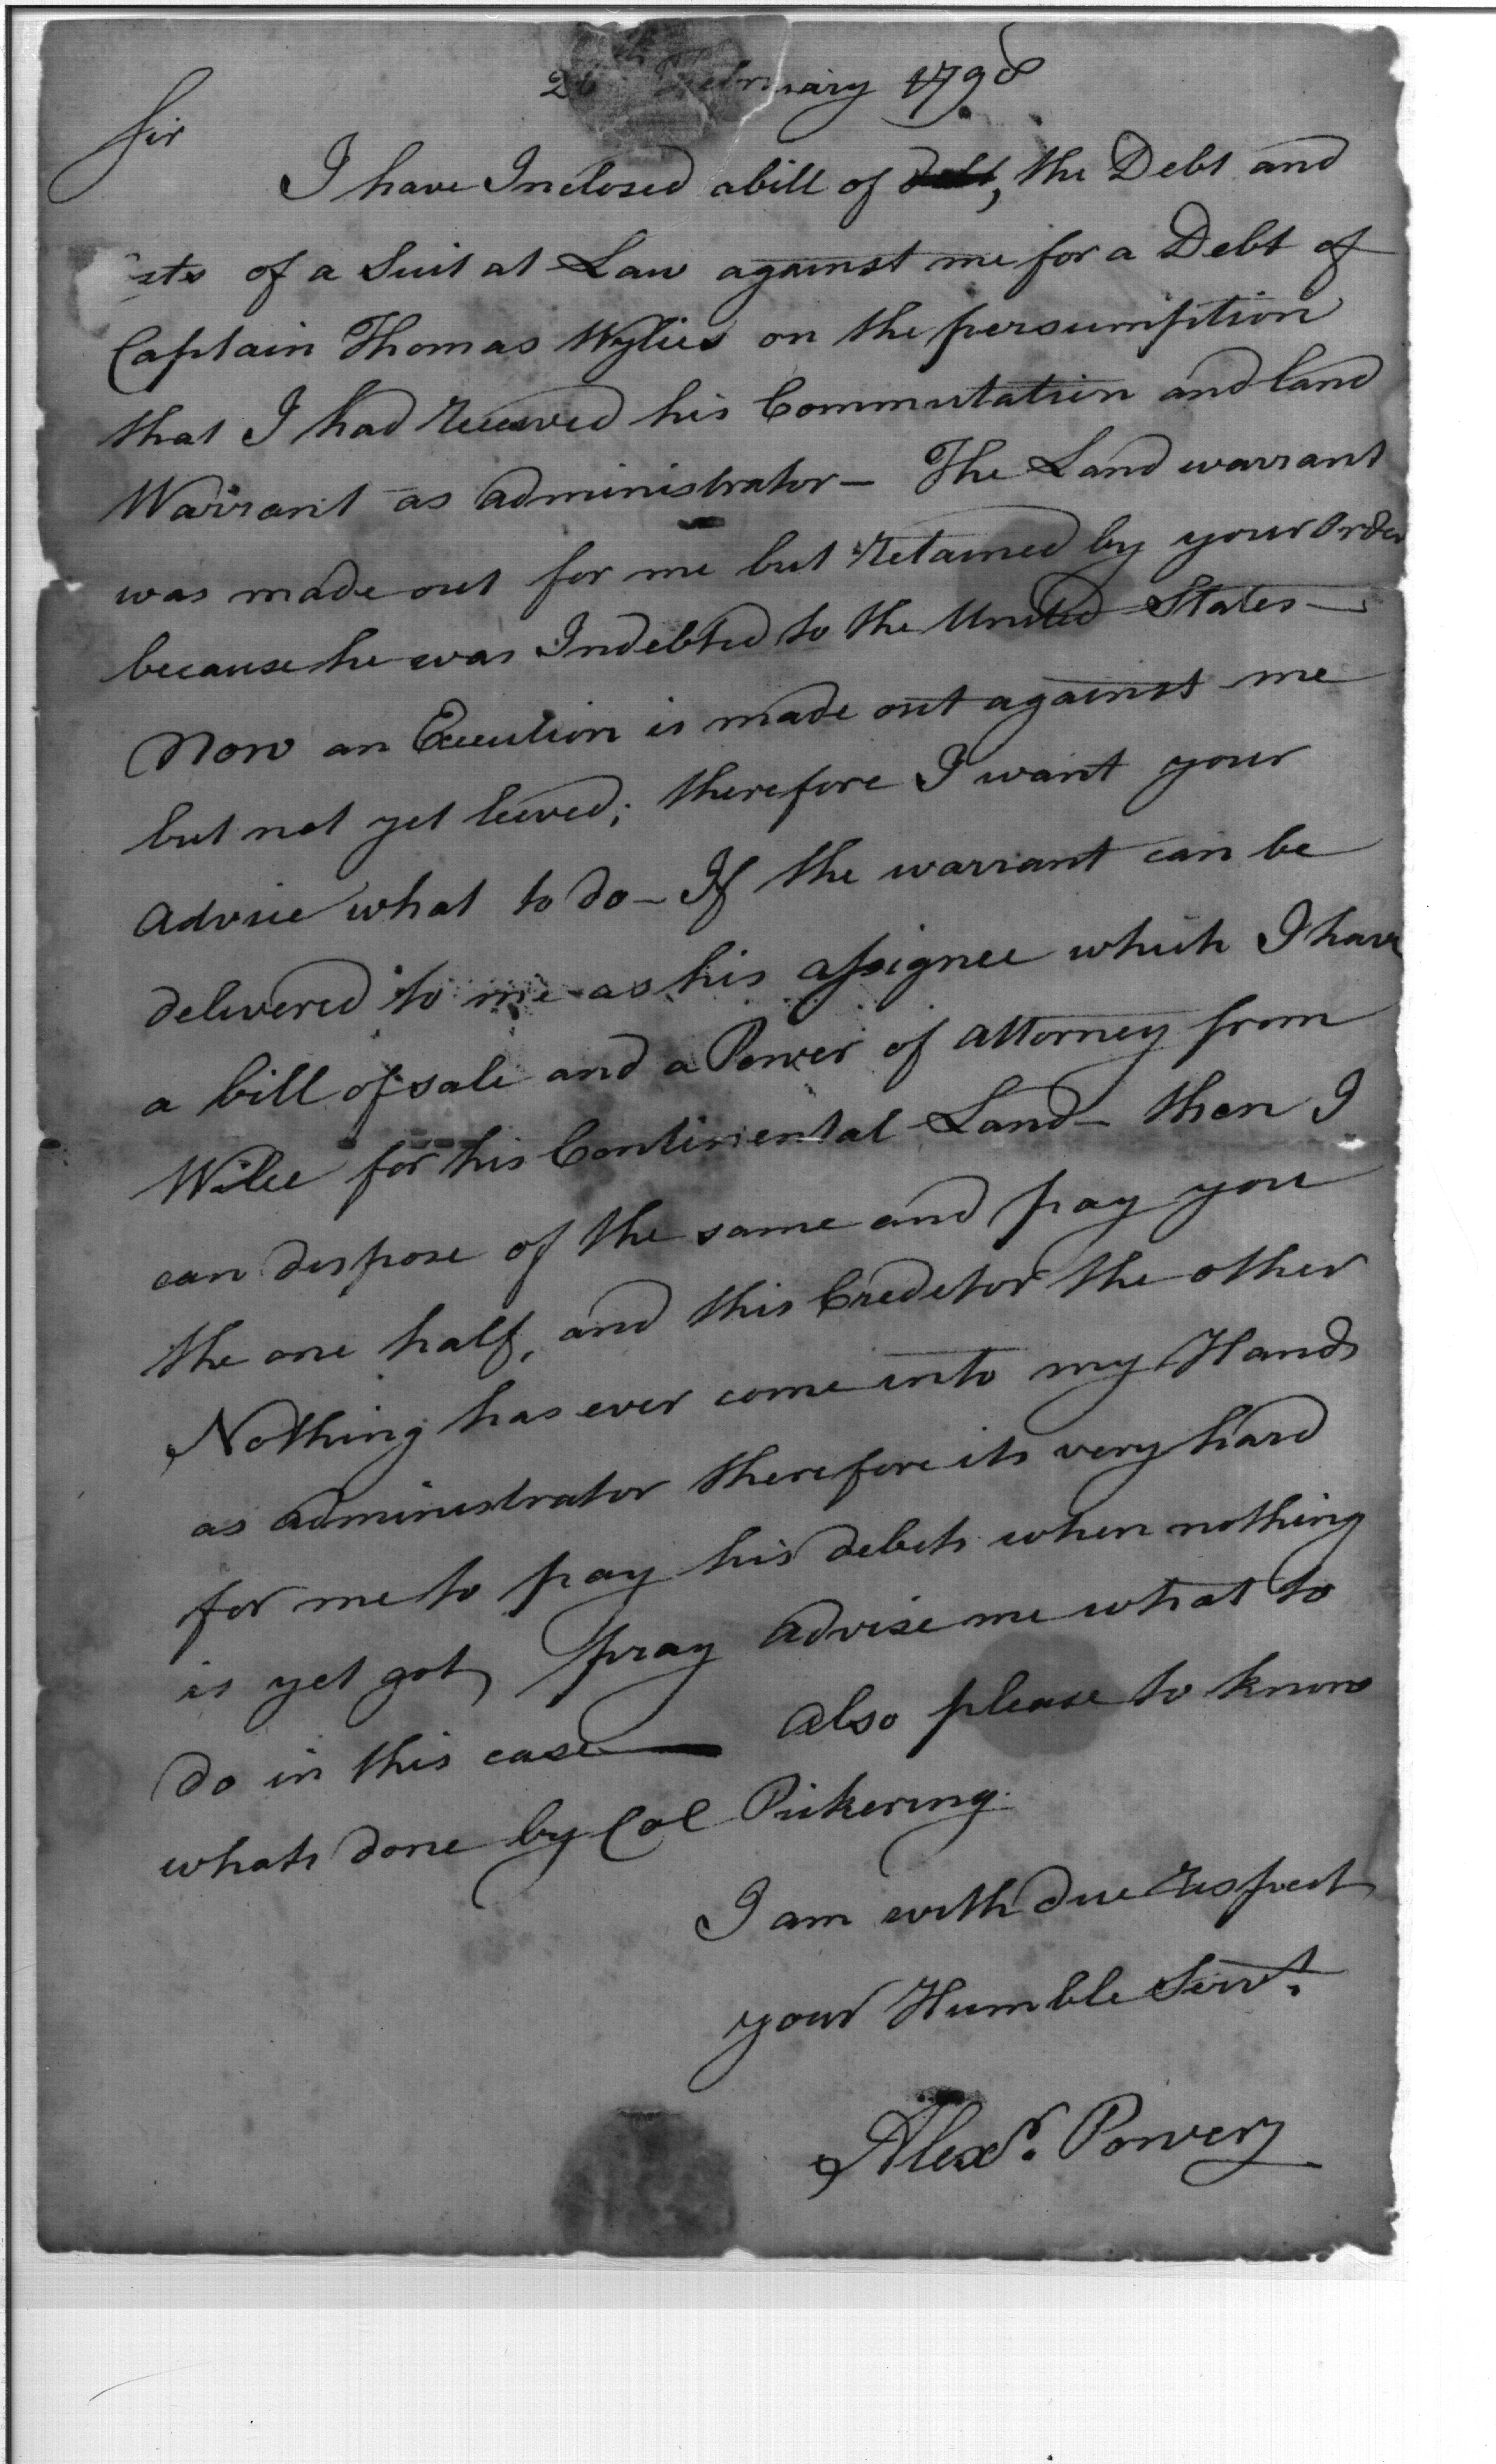 26th February 1798
Sir
I have Inclosed a bill of debt, the Debt and
sts of a Suit at Law against me for a Debt of
Captain Thomas Wylies on the persumption
that I had received his Commutation and land
Warrant as administrator — The Land warrant
was made out for me but retained by your Order
because he was Indebted to the United States —
Now an Execution is made out against me
but not yet leeved; therefore I want your
advice what to do — If the warrant can be
delivered to me as his assignee which I have
a bill of sale and a Power of attorney from
Wilee for his Continental Land — then I
can dispose of the same and pay you
the one half, and this Creditor the other
Nothing has ever come into my Hands
as administrator therefore its very hard
for me to pay his debts when nothing
is yet got, pray advise me what to
do in this case — also please to know
whats done by Col Pickering.
I am with due respect
your Humble Servt.
Alexr. Power